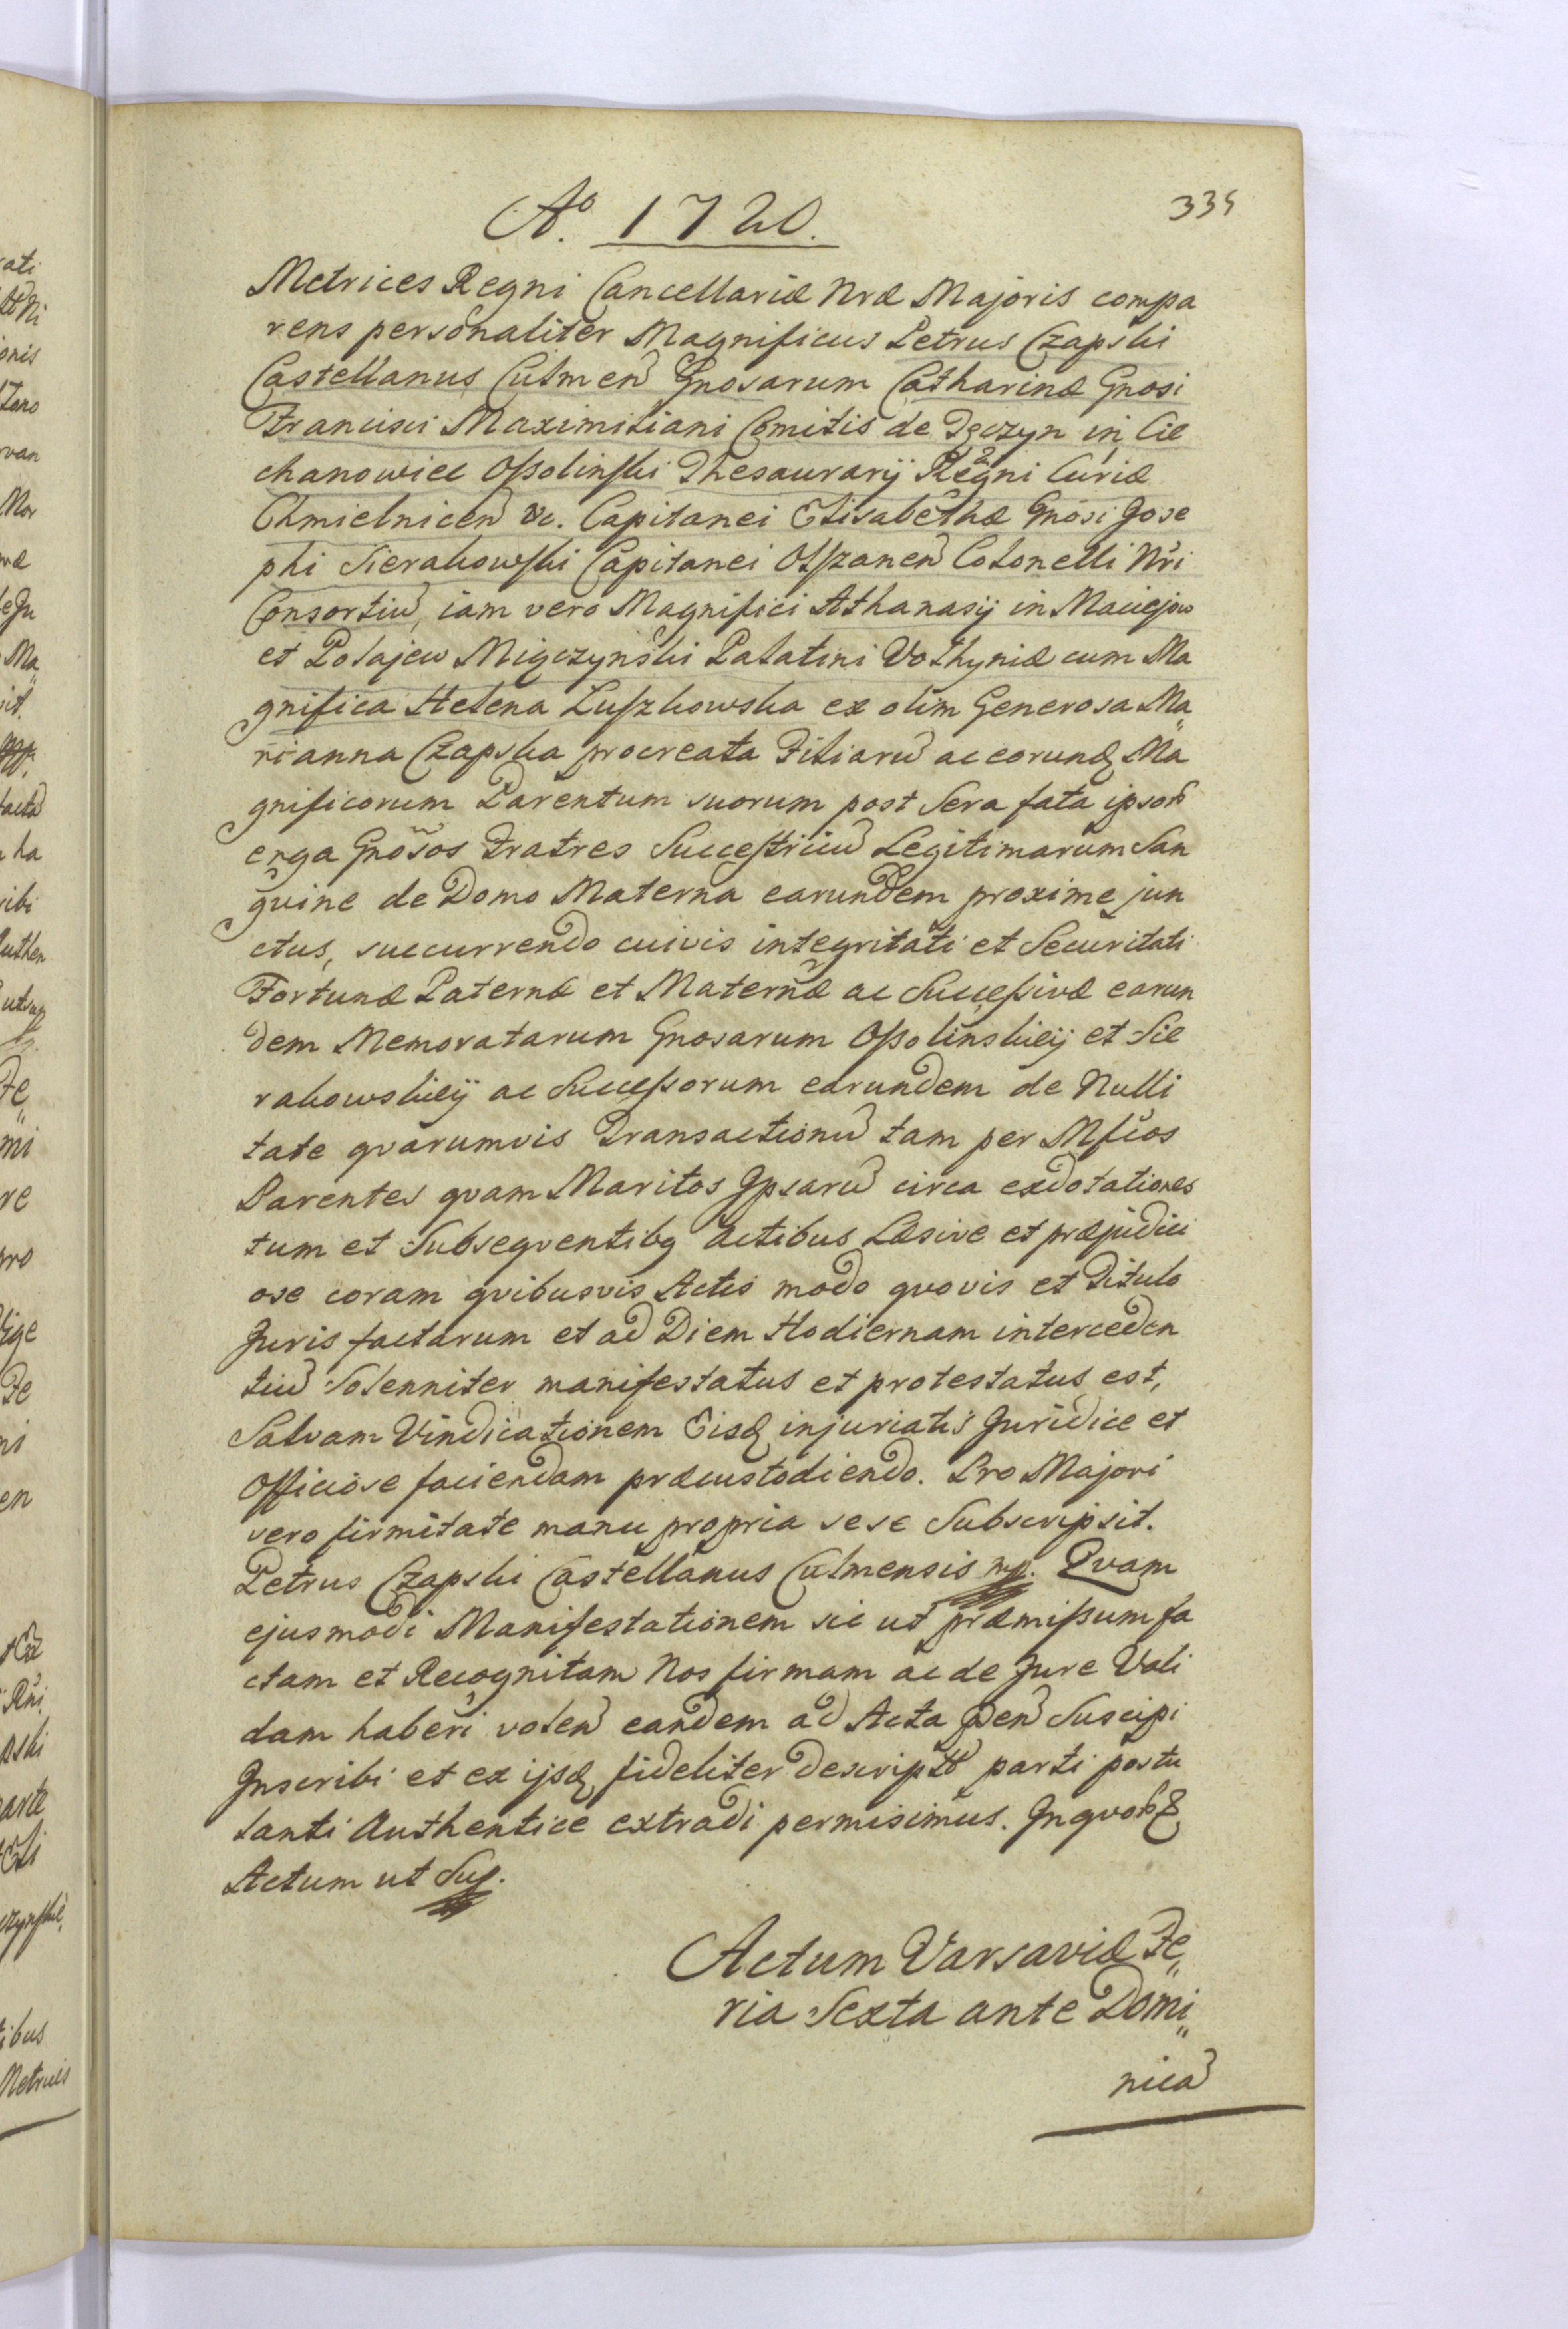 Aº. 1720.
335
Metrices Regni Cancellariæ Nræ Majoris compa
rens personaliter Magnificus Petrus Czapski
Castellanus Culmen Gnosarum Catharinæ Gnosi
Francisci Maximiliani Comitis de Tęczyn in Cie
chanowiec Ossolinski Thesaurarij Regni Curiæ
Chmielnicen &c. Capitanei Elisabethæ Gnosi Jose
phi Sierakowski Capitanei Olszanen Colonelli Nri
Consortiu, iam vero Magnifici Athanasij in Maciejow
et Polajew Miączynski Palatini Volhyniæ cum Ma
gnifica Helena Luszkowska ex olim Generosa Ma„
rianna Czapska procreata Filiaru ac eorunq Ma
gnificorum Parentum suorum post Sera fata ipsor
erga Gnosos Fratres Successriciu Legitimarum San
gvine de Domo Materna earundem proxime jun
ctus, succurrendo cuivis integritati et Securitati
Fortunæ Paternæ et Maternæ ac Successivæ earun
dem Memoratarum Gnosarum Ossolinskiey et Sie
rakowskiey ac Successorum earundem de Nulli
tate qvarumvis Transactionu tam per Mficos
Parentes qvam Maritos Ipsaru circa exdotationes
tum et Subseqventibq actibus Læsive et præjudici
ose coram qvibusvis Actis modo qvovis et Titulo
Juris factarum et ad Diem Hodiernam interceden
tiu Solenniter manifestatus et protestatus est,
Salvam Vindicationem Eisq injuriatis Juridice et
Officiose faciendam præcustodiendo. Pro Majori
vero firmitate manu propria sese Subscripsit.
Petrus Czapski Castellanus Culmensis mp. Qvam
ejusmodi Manifestationem sic ut præmissum fa
ctam et Recognitam Nos firmam ac de Jure Vali
dam haberi volen eandem ad Acta pen Suscipi
Inscribi et ex ijsq fideliter descript parti postu
lanti Authentice extradi permisimus. In qvor
Actum ut Sup.
Actum Varsaviæ Fe„
ria Sexta ante Domi„
nica